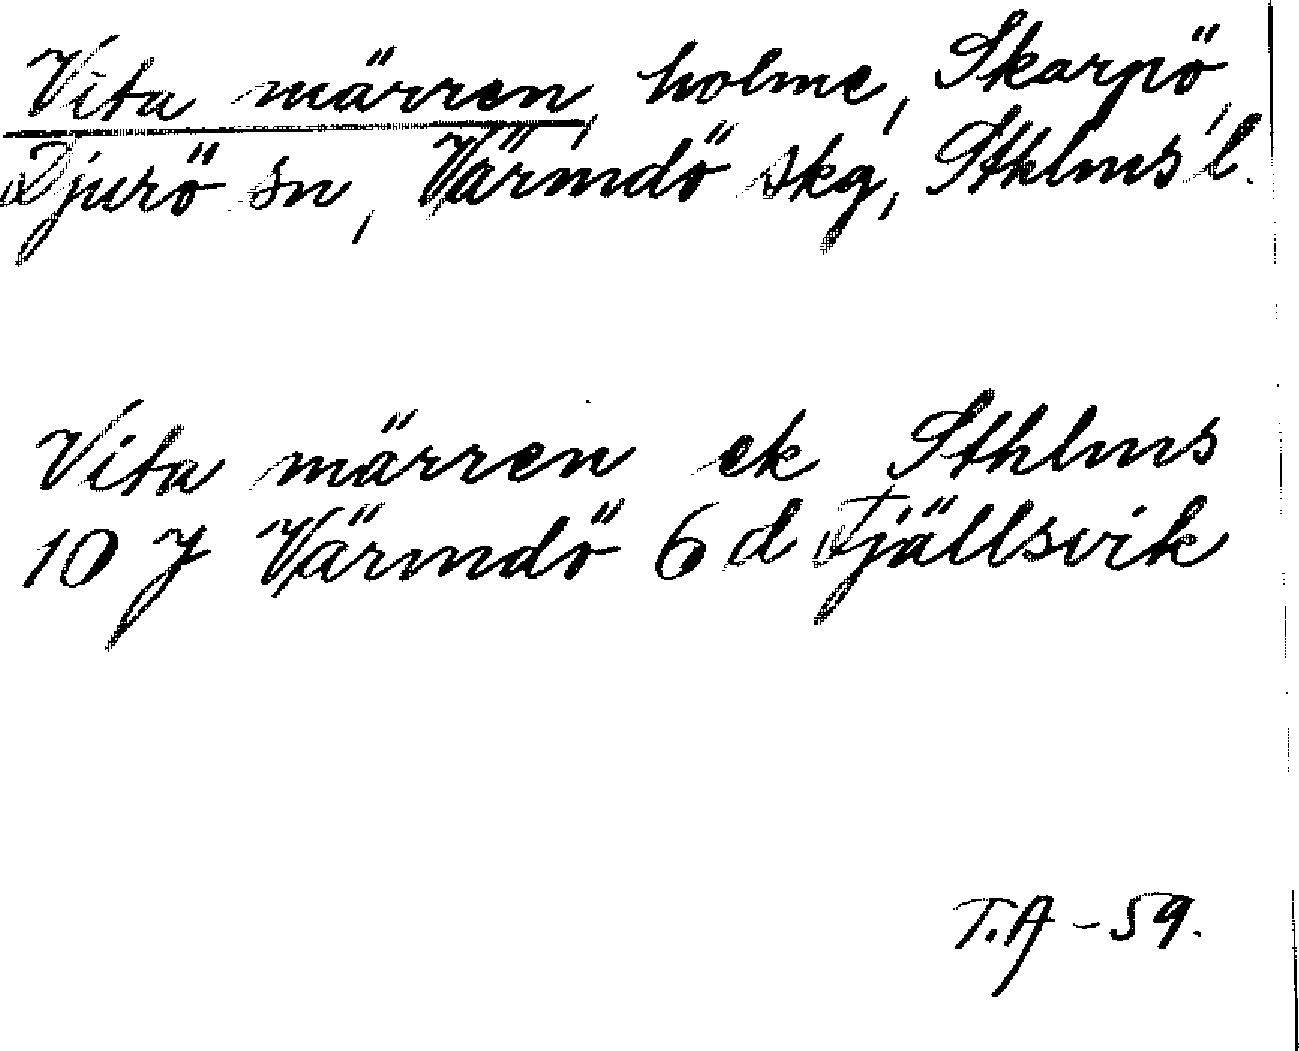 Vita märren, holme, Skarpö,
Djurö sn, Värmdö skg, Sthlms l.
Vita märren ek Sthlms
10 J Värmdö 6 d Fjällsvik
T.A - 59.